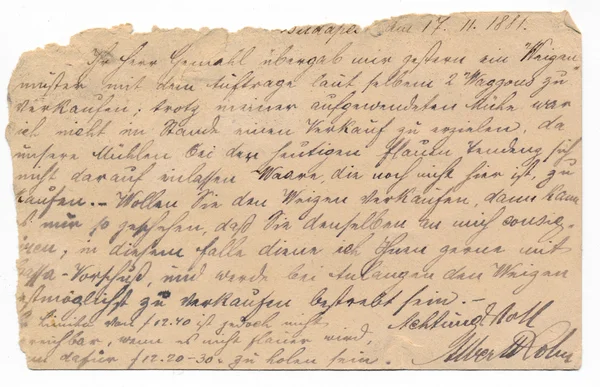 Budapest, den 17. 11. 1881.
Ihr Herr Gemahl übergab mir gestern ein "Weizen
muster mit dem Auftrage laut selbem 2 "Waggons zu
verkaufen; trotz meiner aufgewendeten Mühe war
ich nicht im Stande einen Verkauf zu erzielen, da
unsere Mühlen bei der heutigen flauen Tendenz sich
nicht darauf einlassen Waare, die noch nicht hier ist, zu
kaufen. – Wollen Sie den Weizen verkaufen, dann kann
es nur so geschehen, daß Sie denselben an mich consig-
niren; in diesem Falle diene ich Ihnen gerne mit
Cassa-Vorschuß, und werde bei Anlangen den Weizen
bestmöglichst zu verkaufen bestrebt sein. –
Limite von f 12.40 ist jedoch nicht Achtungsvoll
erreichbar, wenn es nicht flauer wird,
dafür f 12.20-30 zu holen sein. Albert Kohn